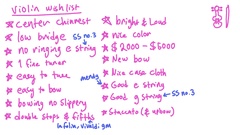 Violin wishlist
* center clearest
* low bridge SS no.3
* no ringing e string
* 1 fine tuner
* easy to tune
* easy to bow
* bowing no slippery
* double stops & fifths
la folia, Vivaldi gm
* bright & Loud
* nice color
* $2000 - $5000
* New bow
* Nice case cloth
* Good e string
* Good g string SS no.3
* Staccato (& bow)